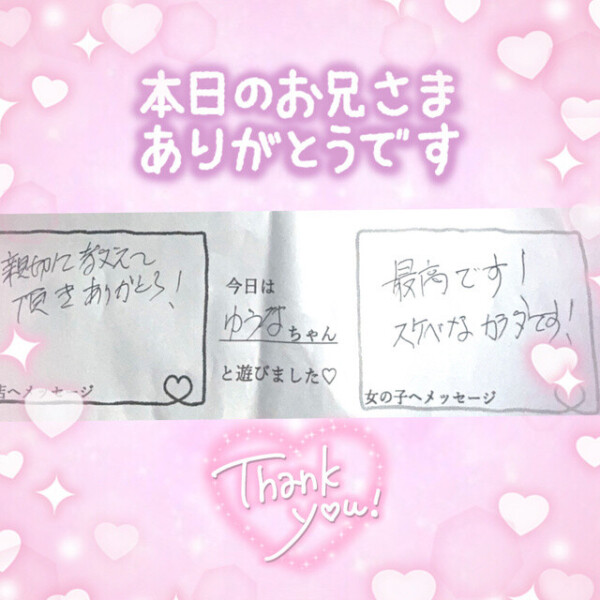 本日のお兄さま
ありがとうです
親切に教えて
頂きありがとう!
店へメッセージ
今日は
ゆうなちゃん
と遊びました♡
最高です!
スケベなカラダです!
女の子へメッセージ
Thank
you!